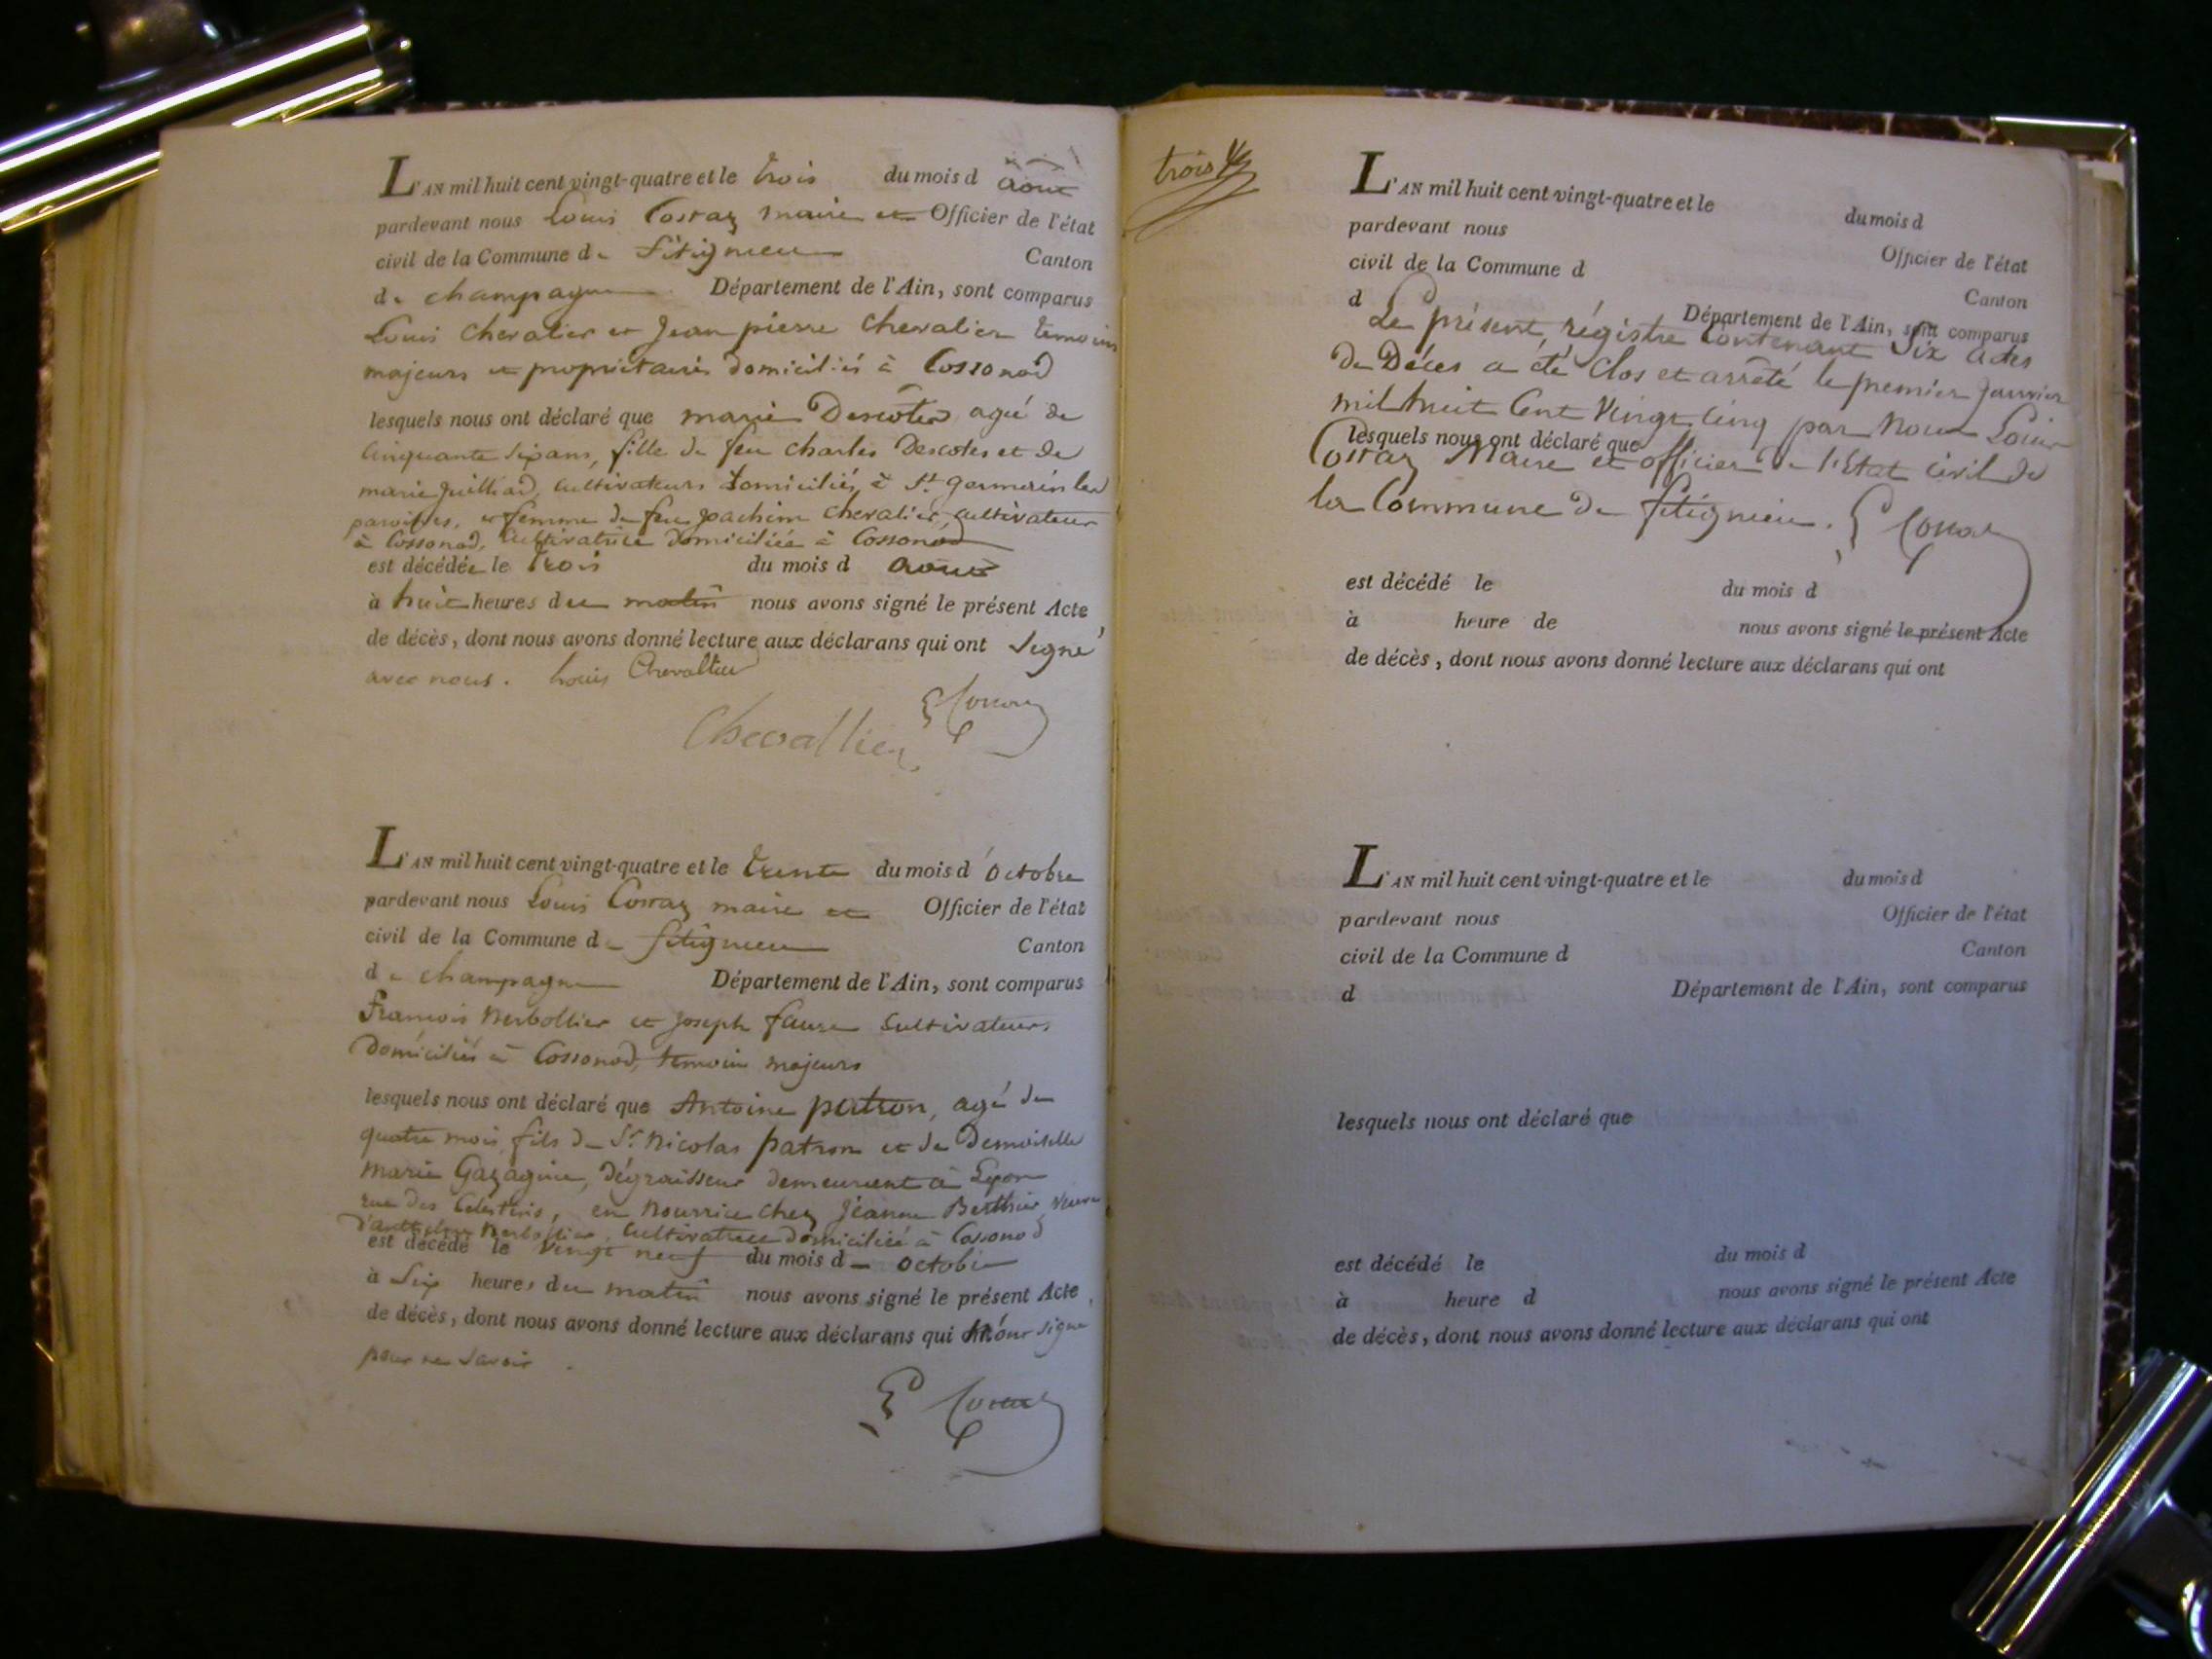 L'AN mil huit cent vingt-quatre et le trois du mois d aout
pardevant nous Louis Costaz maire et Officier de l'état
civil de la Commune de fitignieu Canton
de champagne Département de l'Ain, sont comparus
Louis chevalier et Jean pierre chevalier temoins
majeurs et propriétaires domiciliés à Cossonod
lesquels nous ont déclaré que marie Descotes agé de
Cinquante six ans, fille de feu charles Descotes et de
marie Juilliard, cultivateurs domiciliés à St. germain les
paroisses, et femme de feu joachim chevalier, cultivateur
à Cossonod, cultivatrice domiciliée à Cossonod
est décédée le trois du mois d aout
à huit heures du matin nous avons signé le présent Acte
de décès, dont nous avons donné lecture aux déclarans qui ont signé
avec nous. Louis Chevallier
Costaz
Chevallier
L'AN mil huit cent vingt-quatre et le trente du mois d'octobre
pardevant nous Louis Costaz maire et Officier de l'état
civil de la Commune de fitignieu Canton
de champagne Département de l'Ain, sont comparus
François Berbollier et joseph faure Cultivateurs
Domiciliés à Cossonod, temoins majeurs
lesquels nous ont déclaré que Antoine patron, agé de
quatre mois, fils de Sr. Nicolas patron et de Demoiselle
marie Gazagnie, dégraisseur demeurent à Lyon
rue des Celestins, en Nourrice chez Jeanne Berthier, Veuve
d'anthelme Berbollier, Cultivatrice domiciliée à Cossonod
est décédé le vingt neuf du mois d octobre
à Six heures du matin nous avons signé le présent Acte
de décès, dont nous avons donné lecture aux déclarans qui n'ont signé
pour ne savoir
Costaz
trois
L'AN mil huit cent vingt-quatre et le du mois d
pardevant nous Officier de l'état
civil de la Commune d Canton
d Département de l'Ain, sont comparus
Le présent, régistre Contenant Six actes
de Déces a été Clos et arrêté le premier Janvier
mil huit Cent Vingt Cinq par Nous Louis
lesquels nous ont déclaré que
Costaz Maire et officier de l'Etat Civil de
la Commune de fitignieu. Costaz
est décédé le du mois d
à heure de nous avons signé le présent Acte
de décès, dont nous avons donné lecture aux déclarans qui ont
L'AN mil huit cent vingt-quatre et le du mois d
pardevant nous Officier de l'état
civil de la Commune d Canton
d Département de l'Ain, sont comparus
lesquels nous ont déclaré que
est décédé le du mois d
à heure d nous avons signé le présent Acte
de décès, dont nous avons donné lecture aux déclarans qui ont